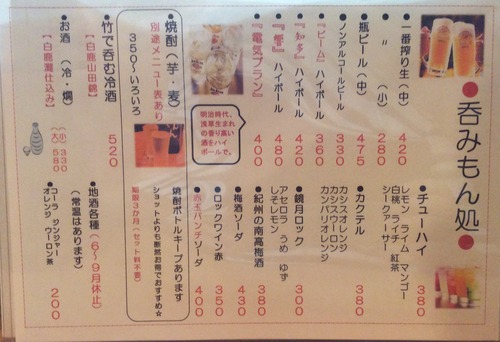 ●呑みもん処●
一番搾り生(中) 420
〃 (小) 280
瓶ビール(中) 475
ノンアルコールビール 330
『ビーム』ハイボール 360
『知多』ハイボール 420
『響』ハイボール 480
『電気ブラン』 400
明治時代、
浅草生まれ
の香り高い
酒をハイ
ボールで。
●焼酎(芋・麦)
別途メニュー表あり
350〜いろいろ
●竹で呑む冷酒 520
【白鹿山田錦】
●お酒(冷・燗)
【白鹿灘仕込み】
(小)330
(大)580
●チューハイ 380
レモン ライム マンゴー
白桃 ライチ 紅茶
シークァーサー
●カクテル 380
カシスオレンジ
カシスウーロン
カンパリオレンジ
●鏡月ロック 300
アセロラ うめ ゆず
しそレモン
●紀州の南高梅酒 380
●梅酒ソーダ 430
●ロックワイン赤 350
●赤玉パンチソーダ 400
焼酎ボトルキープあります
ショットよりも断然お得でおすすめ☆
期限3か月(セット料不要)
●地酒各種(6〜9月休止)
(常温はあります)
コーラ ジンジャー
オレンジ ウーロン茶 200